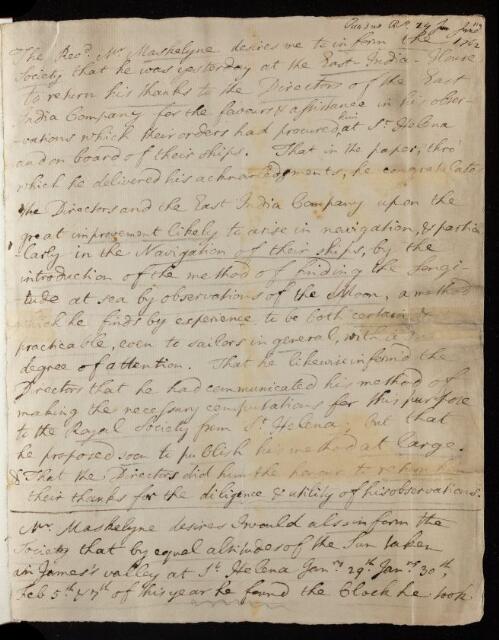 24 June
1762
The Revd. Mr. Maskelyne desires me to inform the
Society that he was yesterday at the East-India-House
to return his thanks to the Directors of the East
India Company for the favours & assistance in his obser-
-vations which their orders had procured him at St. Helena
and on board of their ships. That in the paper, thro'
which he delivered his acknowledgments, he congratulates
the Directors and the East India Company upon the
great improvement likely to arise in navigation, & particu
larly in the Navigation of their ships, by the
introduction of the method of finding the Longi
tude at sea by observations of the Moon, a method
which he finds by experience to be both certain &
practicable, even to sailors in general, with a
degree of attention. That he likewise informd the
Directors that he had communicated his method of
making the necessary computations for this purpose
to the Royal Society from St. Helena; but that
he proposed soon to publish his method at large.
& That the Directors did him the honour to return him
their thanks for the diligence & utility of his observations.
Mr. Maskelyne desires I would also inform the
Society that by equal altitudes of the Sun taken
in James's valley at St. Helena Janry 29th. Janry 30th,
Feb 5th & 7th of this year he found the Clock he took